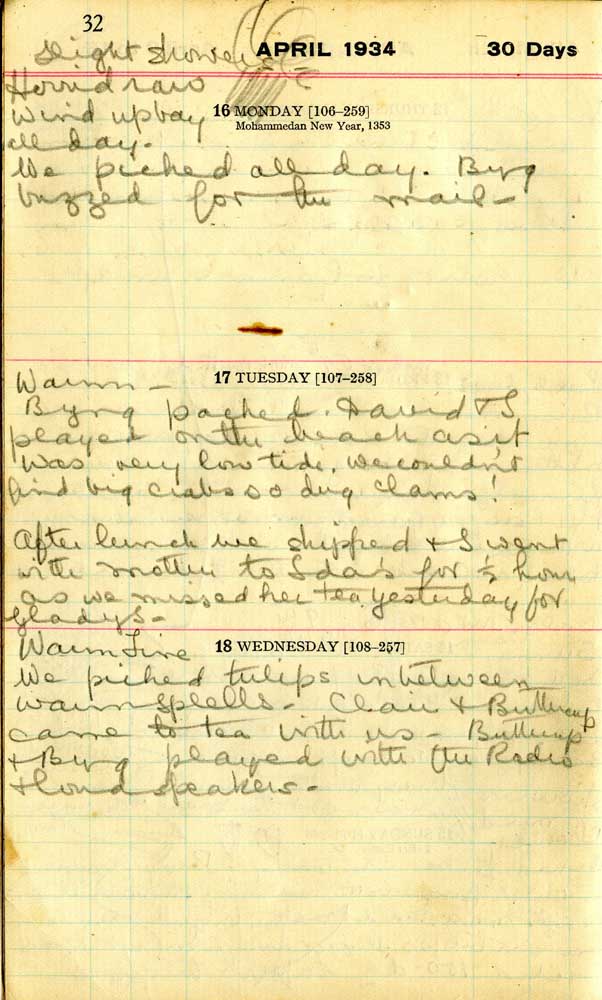 32
APRIL 1934 30 Days
Slight showers
Horrid raw
Wind up bay
all day.
16 MONDAY [106–259]
Mohammedan New Year, 1353
We picked all day. Byng
buzzed for the mail –
17 TUESDAY [107–258]
Warm –
Byng packed. David & I
played on the beach as it
was very low tide, we couldn't
find big crabs so dug clams!
After lunch we shipped & I went
with mother to Ida's for ½ hour
as we missed her tea yesterday for
Gladys –
18 WEDNESDAY [108–257]
Warm Fine
We picked tulips in between
warm splells – Clair & Buttercup
came to tea with us – Buttercup
& Byng played with the Radio
& loud speakers –